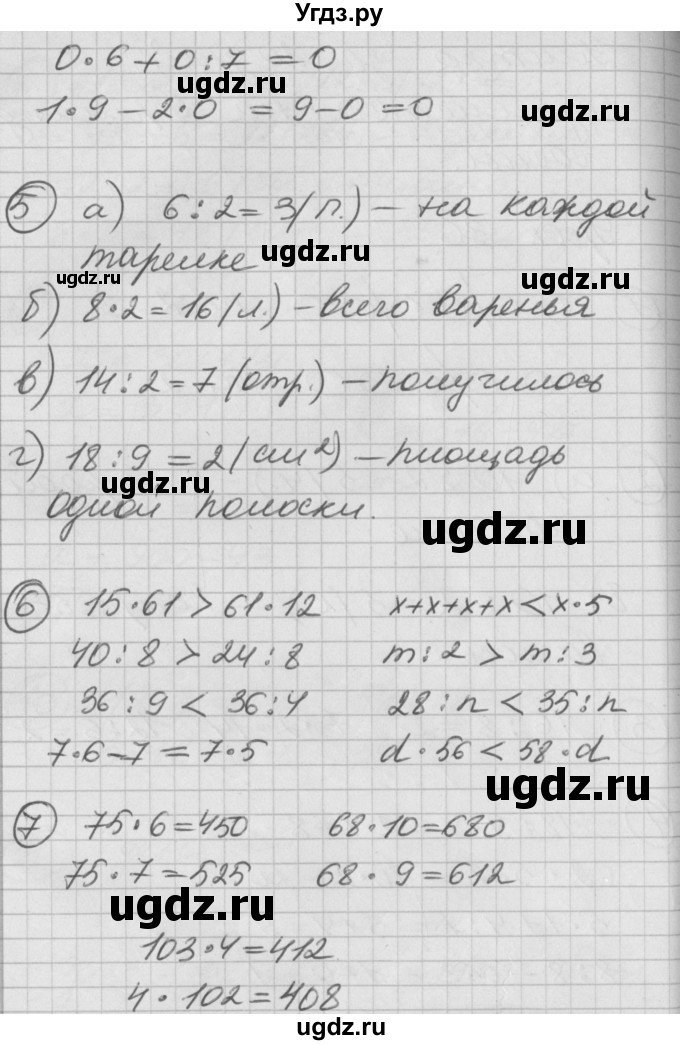 Угдз.ру
0·6+0:7=0
ugdz.ru
1·9-2·0 = 9-0=0
ugdz.ru
5 а) 6:2=3(п.) - на каждой
тарелке
ugdz.ru
ugdz.ru
ugdz.ru
б) 8·2=16(л.) - всего варенья
в) 14:2=7(отр.) - получилось
г) 18:9=2(см²) - площадь
ugdz.ru
одной полоски.
ugdz.ru
6 15·61>61·12 x+x+x+x<x·5
40:8>24:8 m:2>m:3
36:9<36:4 28:n<35:n
7·6-7=7·5 d·56<58·d
ugdz.ru
7 75·6=450 68·10=680
75·7=525 68·9=612
ugdz.ru
103·4=412
4·102=408
ugdz.ru